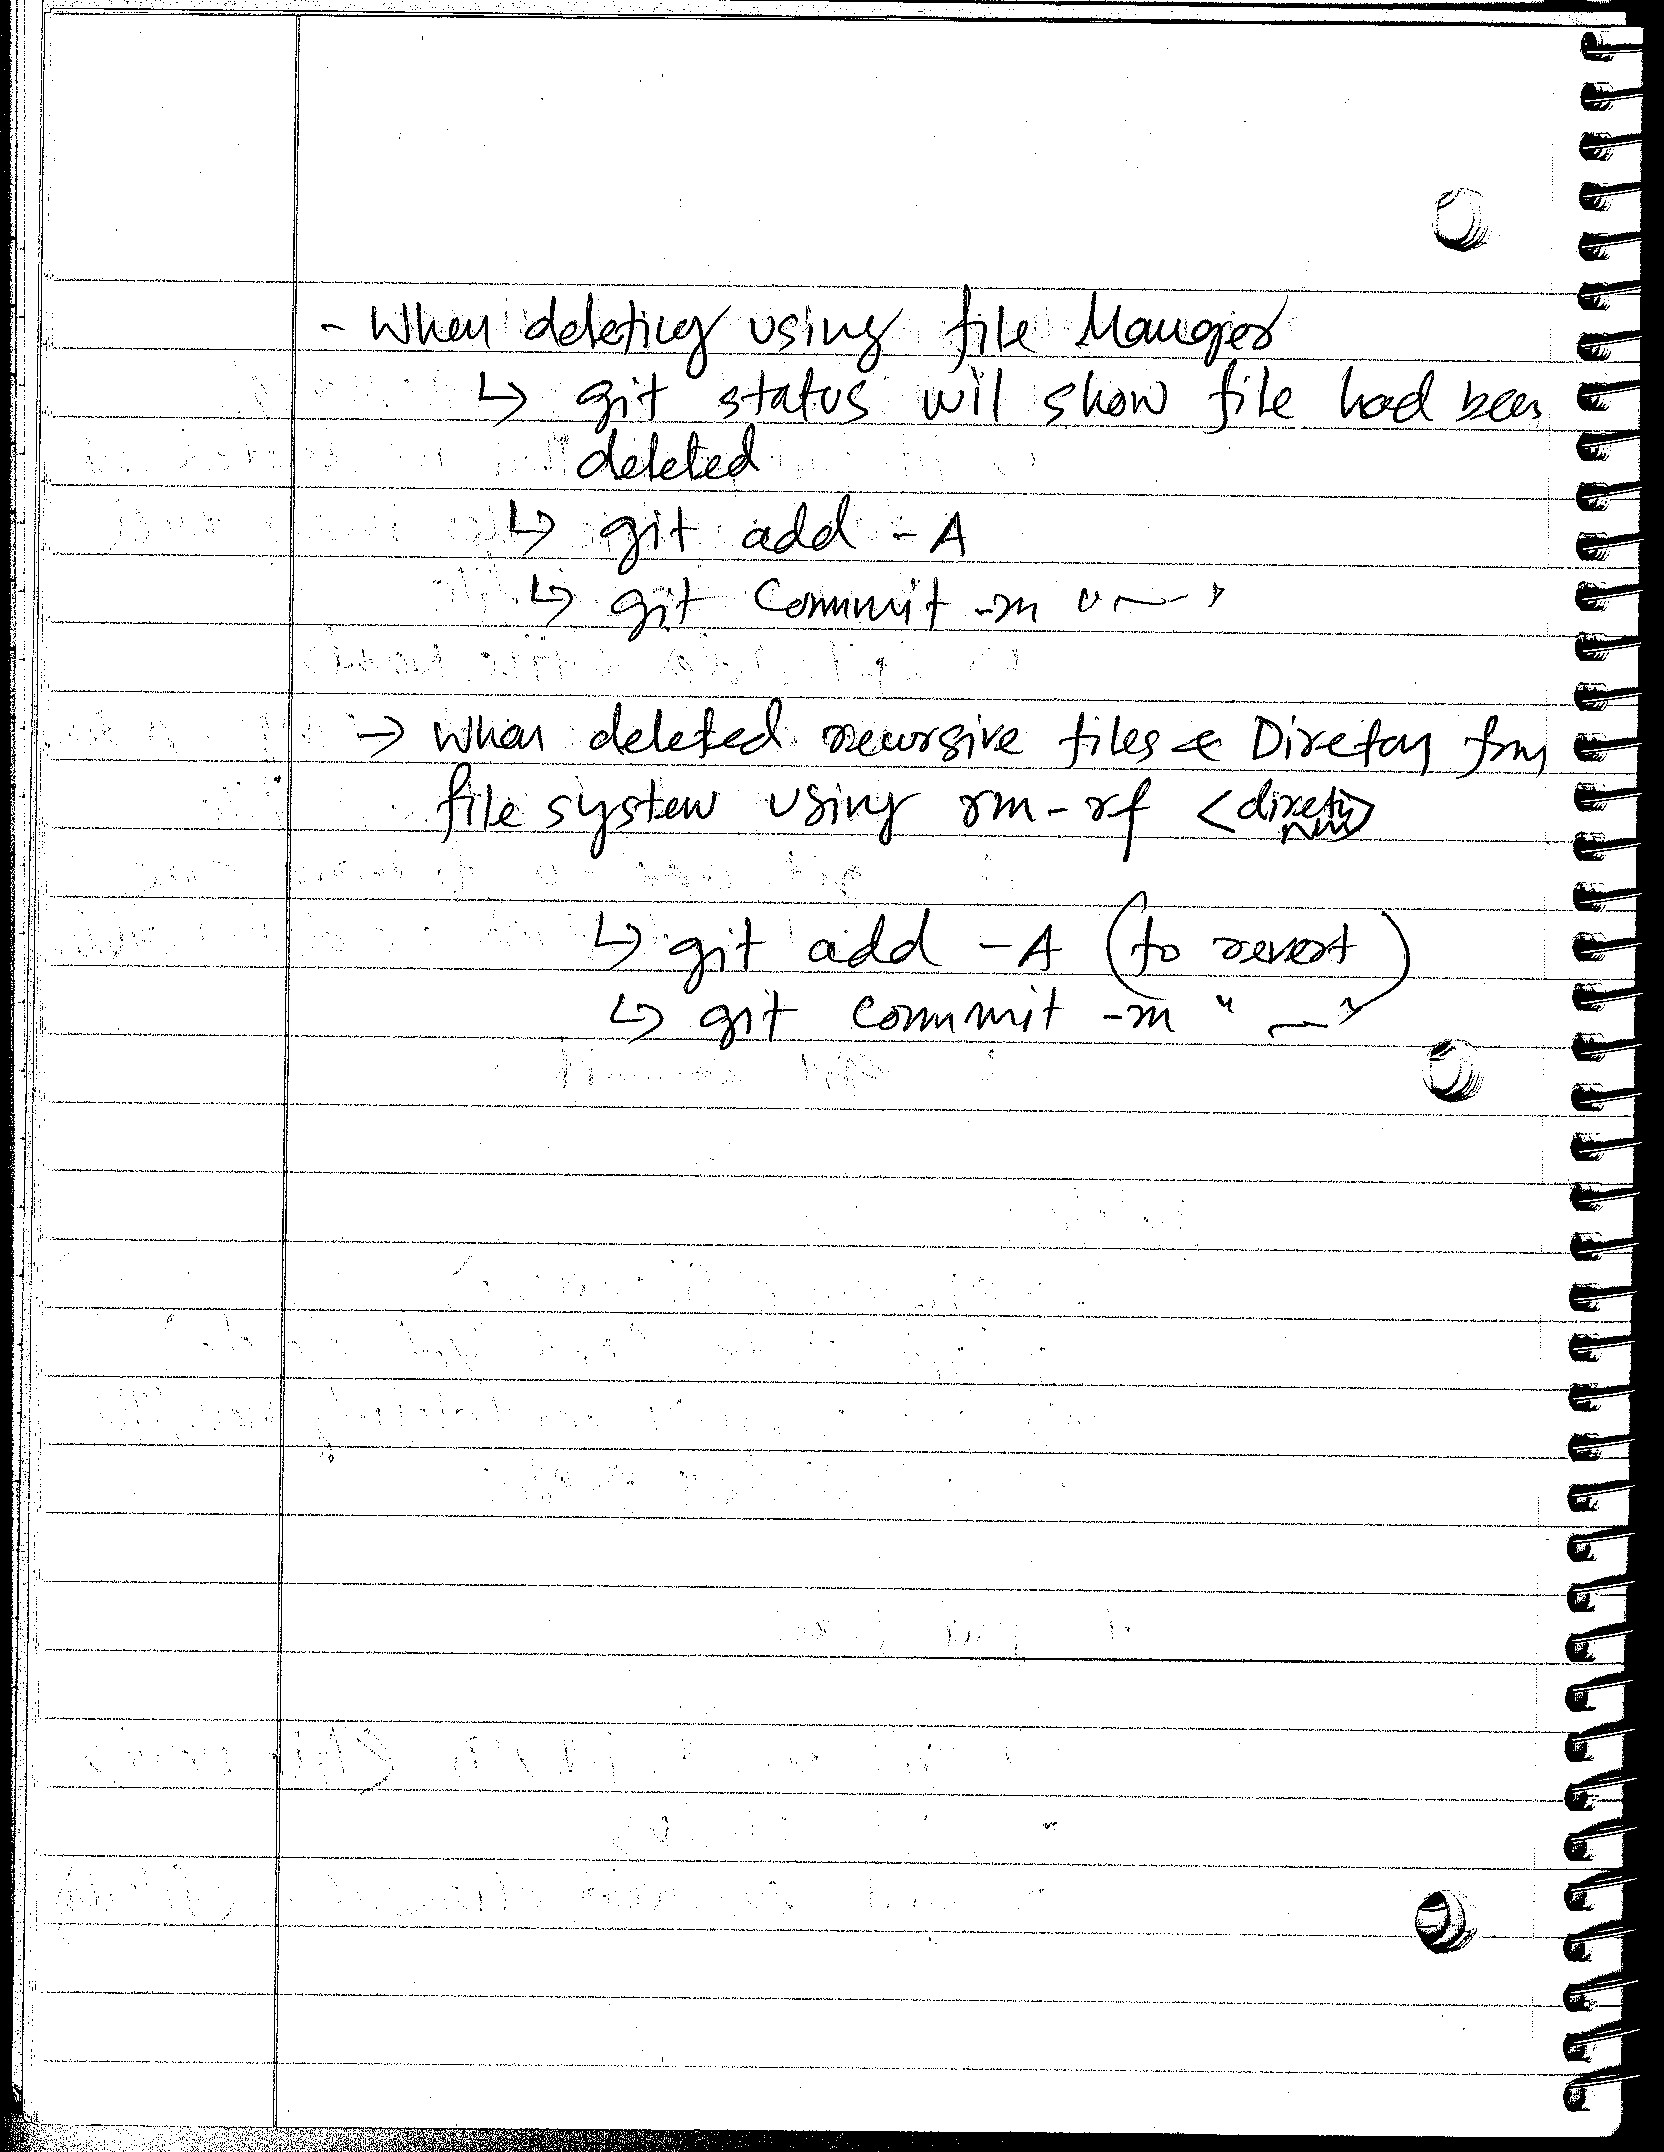 - When deleting using file Manager
↳ git status wil show file had been
deleted
↳ git add -A
↳ git commit -m " ~ "
→ when deleted recursive files & Diretory from
file system using rm-rf <direty
↳ git add -A (to revert)
↳ git commit -m " __ "